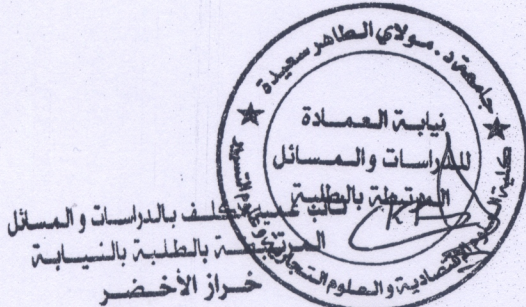 جامعة د. مولاي الطاهر سعيدة
كلية العلوم الاقتصادية والعلوم التجارية وعلوم التسيير
نيابة العمادة
للدراسات والمسائل
المرتبطة بالطلبة
نائب عميد مكلف بالدراسات والمسائل
المرتبطة بالطلبة بالنيابة
خراز الأخضر